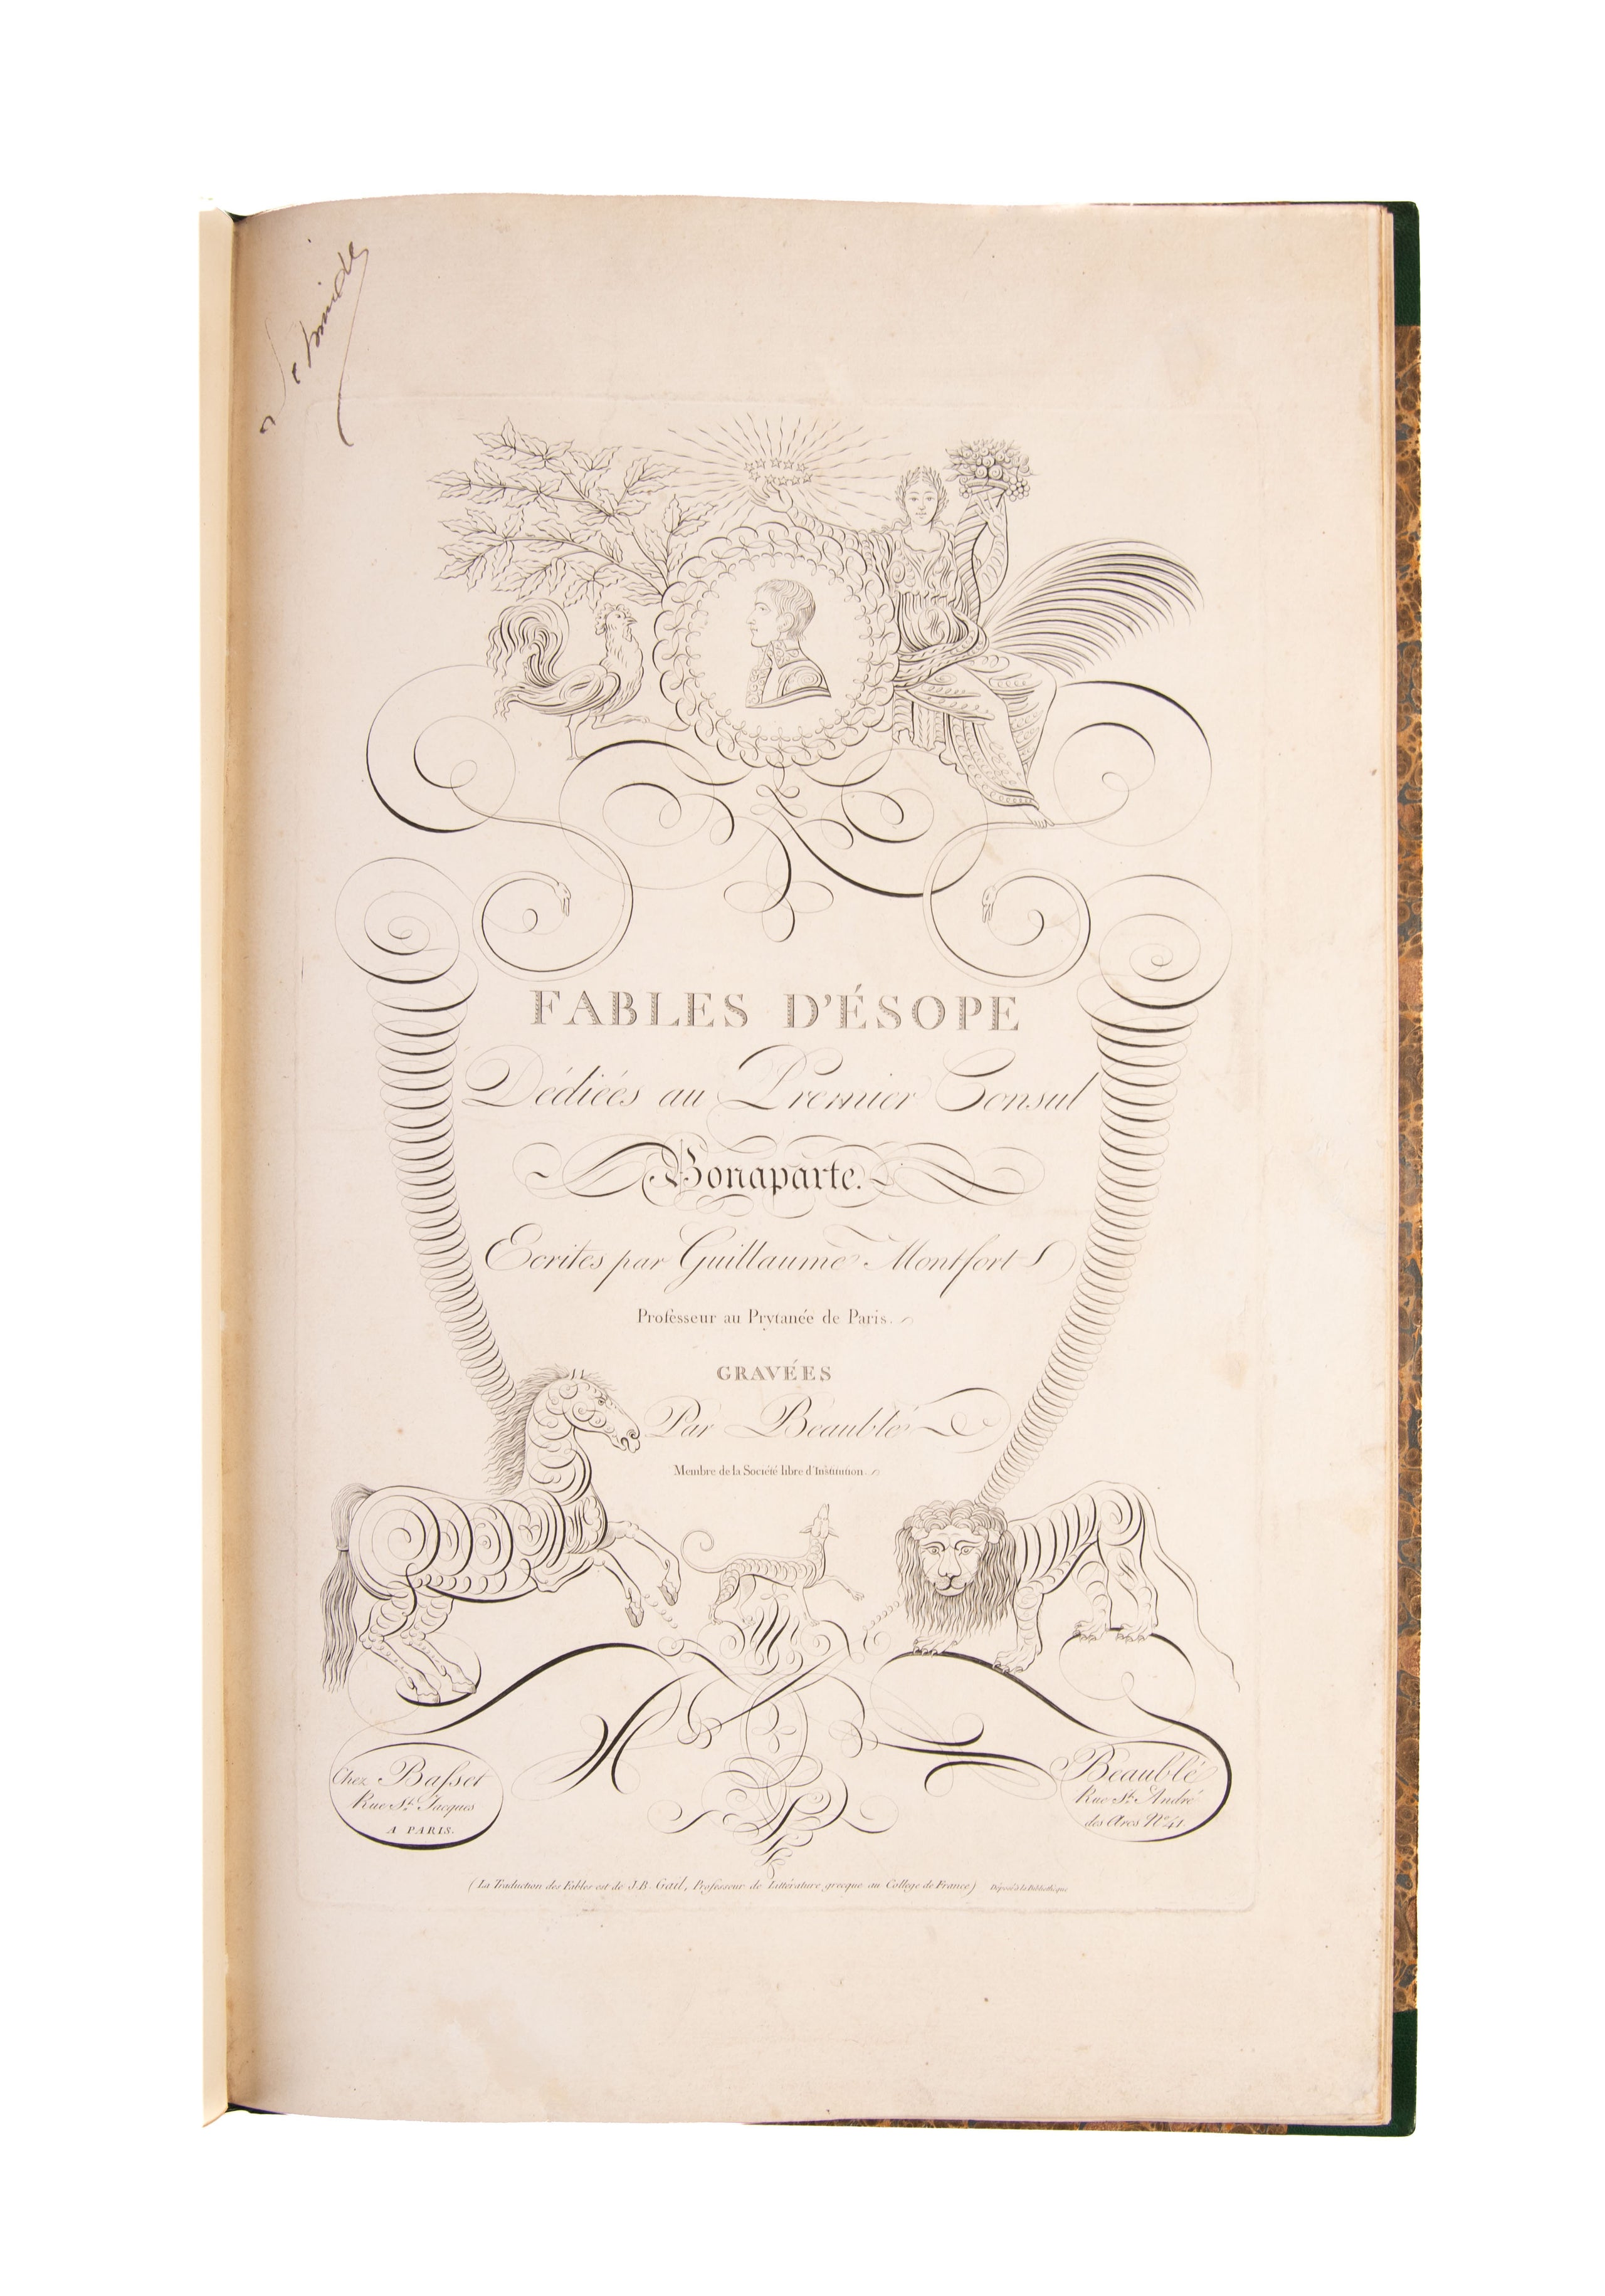 FABLES D'ÉSOPE
Dédiées au Premier Consul
Bonaparte.
Ecrites par Guillaume Montfort
Professeur au Prytanée de Paris.
GRAVÉES
Par Beaublé
Membre de la Société libre d'Institution.
Chez Basset
Rue St. Jacques
A PARIS.
Beaublé
Rue St. André
des Arcs No. 41.
(La Traduction des Fables est de J.B. Gail, Professeur de Littérature grecque au Collège de France) Déposé à la Bibliothèque